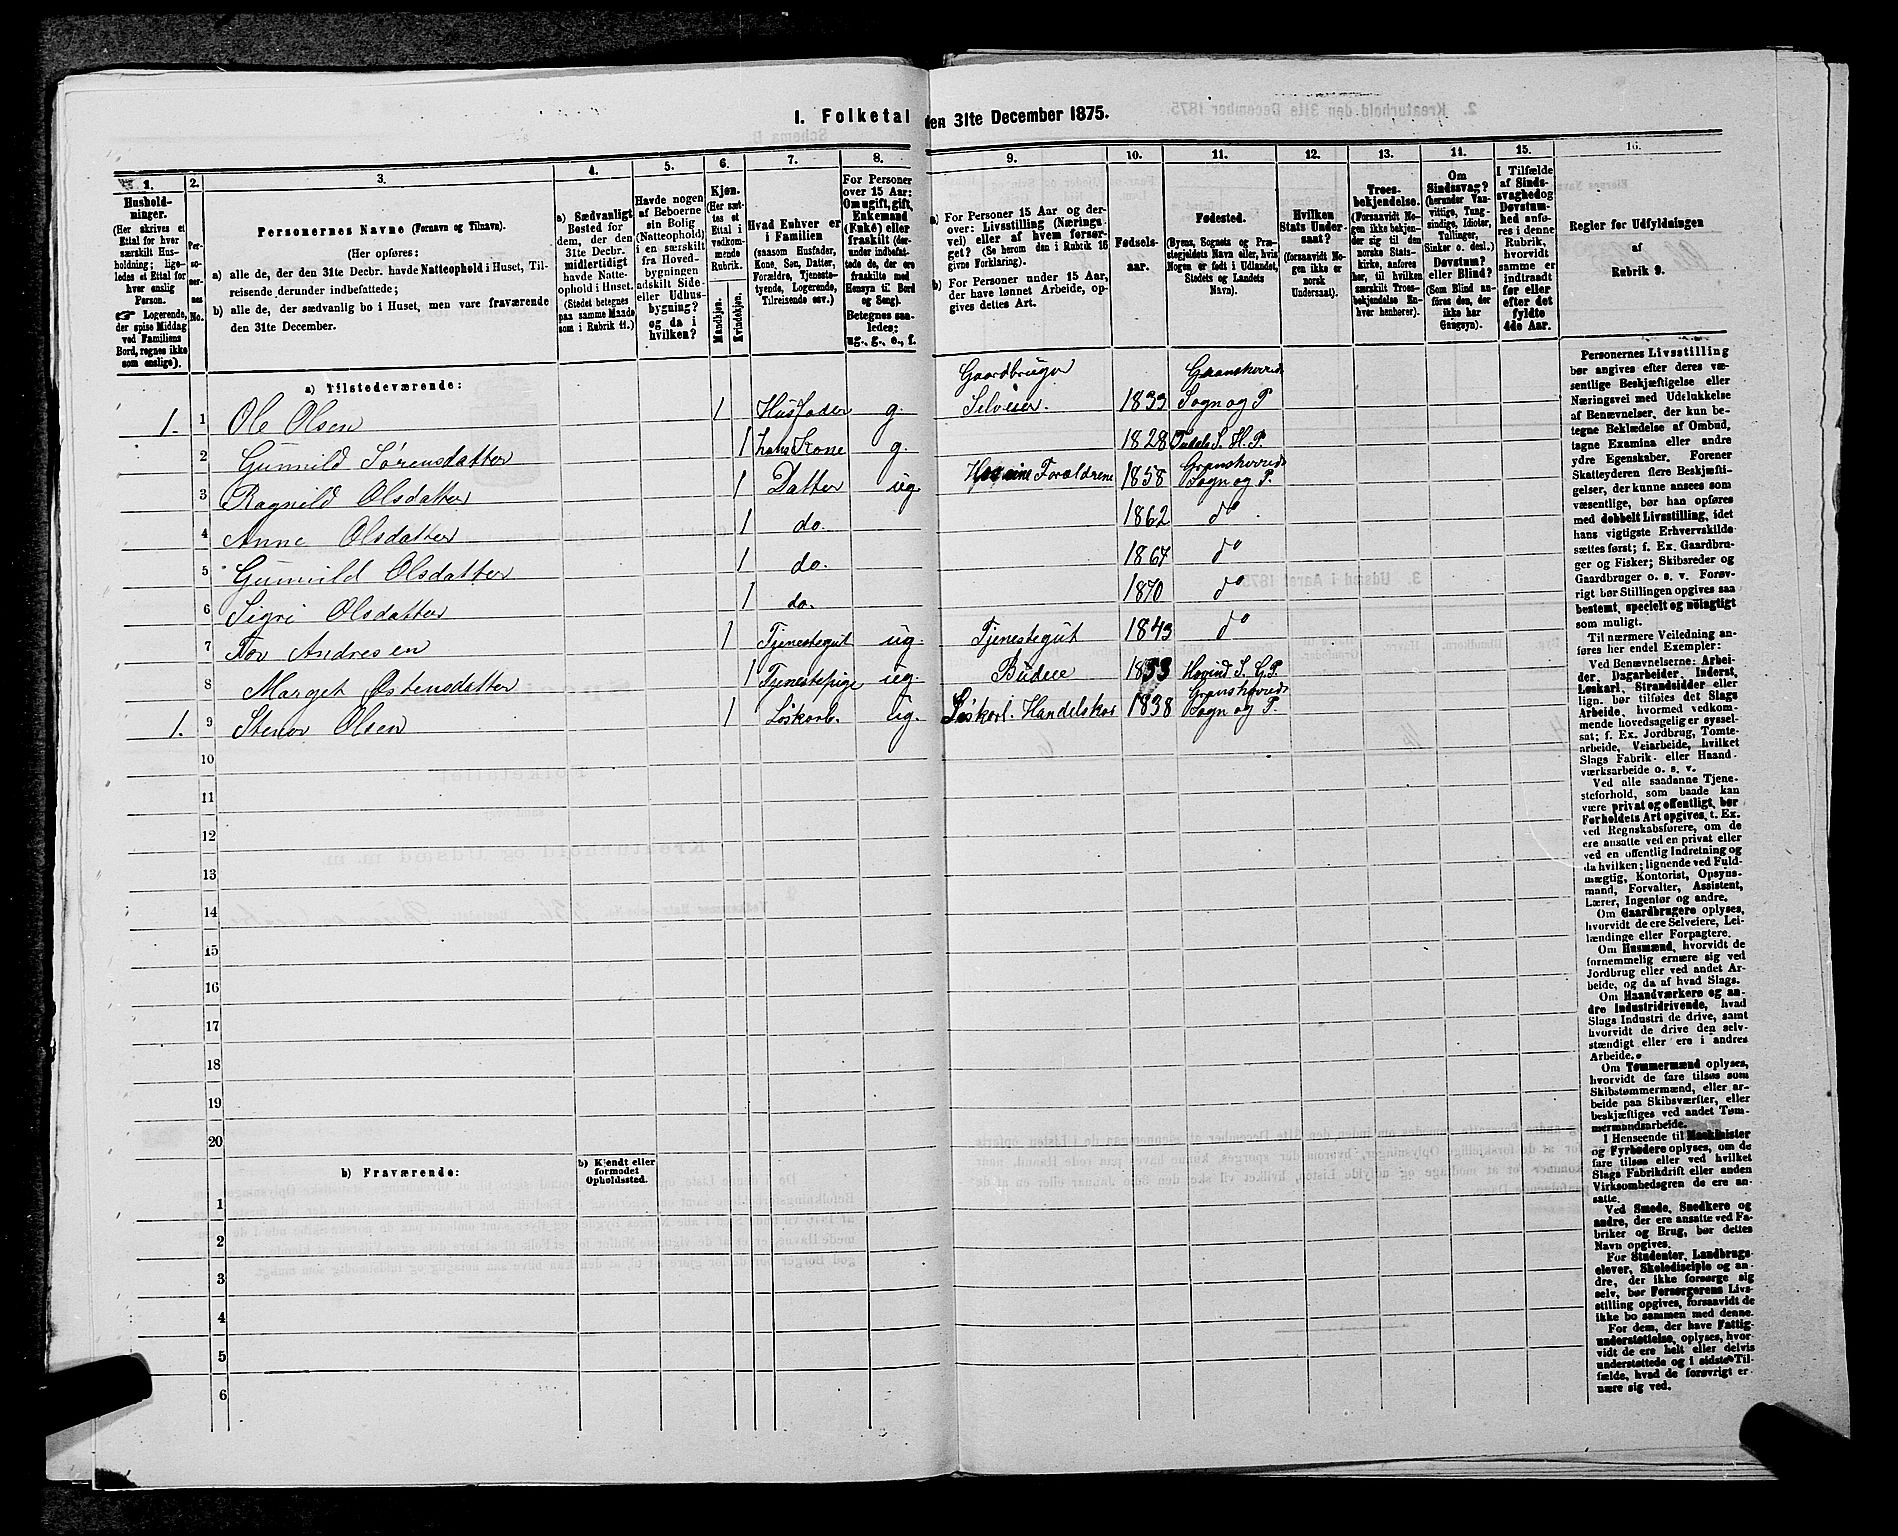 1. Folketal den 31te December 1875.
1.
Husholdninger.
(Her skrives et
Ettal for hver
særskilt Husholdning; ligeledes et Ettal for
hver enslig
Person.
☞ Logerende,
der spise Middag
ved Familiens
Bord, regnes ikke
som enslige).
2.
Personernes
No.
3.
Personernes Navne (Fornavn og Tilnavn).
(Her opføres:
a) alle de, der den 31te Decbr. havde Natteophold i Huset, Tilreisende derunder indbefattede;
b) alle de, der sædvanlig bo i Huset, men vare fraværende
den 31te December.
4.
a) Sædvanligt
Bosted for
dem, der den
31te Decbr.
midlertidigt
havde Natteophold i Huset.
(Stedet betegnes
paa samme Maade
som i Rubrik 11.)
5.
Havde nogen
af Beboerne
sin Bolig
(Natteophold)
i en særskilt
fra Hovedbygningen
adskilt Side-
eller Udhusbygning?
og da i
hvilken?
6.
Kjøn.
(Her sættes et
Ettal i
vedkommende
Rubrik.
Mandkjøn.
Kvindekjøn.
7.
Hvad Enhver er
i Familien
(saasom Husfader,
Kone, Søn, Datter,
Forældre, Tjenestetyende, Logerende,
Tilreisende osv.)
8.
For Personer
over 15 Aar:
Om ugift, gift,
Enkemand
(Enke) eller
fraskilt (derunder indbefattede de, der ere
fraskilte med
Hensyn til Bord
og Seng).
Betegnes saaledes:
ug., g., e., f.
9.
a) For Personer 15 Aar og derover: Livsstilling (Næringsvei) eller af hvem forsørget? (Se herom den i Rubrik 16
givne Forklaring).
b) For Personer under 15 Aar,
der have lønnet Arbeide, opgives dettes Art.
10.
Fødselsaar.
11.
Fødested.
(Byens, Sognets og Præstegjeldets Navn eller, hvis
Nogen er født i Udlandet,
Stedets og Landets
Navn).
12.
Hvilken
Stats Undersaat?
(forsaavidt Nogen ikke er
norsk
Undersaat).
13.
Troesbekjendelse.
(Forsaavidt Nogen ikke bekjender sig til den
norske Statskirke, anføres
her, til hvilken
særskilt Troesbekjendelse Enhver henhører).
14.
Om
Sindssvag?
(herunder Vanvittige, Tungsindige, Idioter,
Tullinger,
Sinker o. desl.)
Døvstum?
eller Blind?
(Som Blind anføres den, der
ikke har
Gangsyn).
15.
I Tilfælde
af Sindssvaghed og
Døvstumhed anføres i denne
Rubrik,
hvorvidt
samme er
indtraadt
før eller
efter det
fyldte
4de Aar.
16.
Regler for Udfyldningen
af
Rubrik 9.
a) Tilstedeværende:
1. 1 Ole Olsen 1 Husfader g. Gaardbruger Selveier. 1833 Sogn og P
2 Gunnild Sørensdatter 1 hans Kone g. 1828 S. H. P.
3 Ragnild Olsdatter 1 Datter ug Forældrene 1858 Sogn og P.
4 Anne Olsdatter 1 do. 1862 do.
5 Gunnild Olsdatter 1 do. 1867 do
6 Sigri Olsdatter 1 do. 1870 do
7 Tov Andresen 1 Tjenestegut ug. Tjenestegut 1843 do
8 Marget Østensdatter 1 Tjenestepige ug. Budeie 1853 Hovind S. G. P.
1. 9 Stenor Olsen 1 Løskarl. ug. Løskarl. Handelskar 1838 Sogn og P.
10
11
12
13
14
15
16
17
18
19
20
b) Fraværende:
b) Kjendt eller
formodet
Opholdssted.
1
2
3
4
5
6
Personernes Livsstilling
bør angives efter deres væsentlige Beskjæftigelse eller
Næringsvei med Udelukkelse
af Benævnelser, der kun betegne Beklædelse af Ombud,
tagne Examina eller andre
ydre Egenskaber. Forener
Skatteyderen flere Beskjæftigelser, der kunne ansees som
væsentlige, bør han opføres
med dobbelt Livsstilling, idet
hans vigtigste Erhvervskilde
sættes først; f. Ex. Gaardbruger og Fisker; Skibsreder og
Gaardbruger o. s. v. Forøvrigt bør Stillingen opgives saa
bestemt, specielt og nøiagtigt
som muligt.
Til nærmere Veiledning anføres her endel Exempler:
Ved Benævnelserne: Arbeider, Dagarbeider, Inderst,
Løskarl, Strandsidder eller
lign. bør tilføies det Slags
Arbeide, hvormed vedkommende hovedsagelig er sysselsat; f. Ex. Jordbrug, Tomtearbeide, Veiarbeide, hvilket
Slags Fabrik- eller Haandværksarbeide o. s. v.
Ved alle saadanne Tjenesteforhold, som baade kan
være privat og offentligt, bør
Forholdets Art opgives, t. Ex.
ved Regnskabsførere, om de
ere ansatte ved en privat eller
ved en offentlig Indretning og
da hvilken; lignende ved Fuldmægtig, Kontorist, Opsynsmand, Forvalter, Assistent,
Lærer, Ingeniør og andre.
Om Gaardbrugere oplyses,
hvorvidt de ere Selveiere, Leilændinge eller Forpagtere.
Om Husmænd, hvorvidt de
fornemmelig ernære sig ved
Jordbrug eller ved andet Arbeide, og da af hvad Slags.
Om Haandværkere og andre Industridrivende, hvad
Slags Industri de drive, samt
hvorvidt de drive den selvstændigt eller ere i andres
Arbeide.
Om Tømmermænd oplyses,
hvorvidt de fare tilsøs som
Skibstømmermænd, eller arbeide paa Skibsværfter, eller
beskjæftiges ved andet Tømmermandsarbeide.
I Henseende til Maskinister
og Fyrbødere oplyses, om de
fare tilsøs eller ved hvilket
Slags Fabrikdrift eller anden
Virksomhedsgren de ere ansatte.
Ved Smede, Snedkere og
andre, der ere ansatte ved Fabriker og Brug, bør dettes
Navn opgives.
For Studenter, Landbrugselever, Skoledisciple og andre, der ikke forsørge sig
selv, bør Forsørgerens Livsstilling opgives, forsaavidt de
ikke bo sammen med denne.
For dem, der have Fattigunderstøttelse, oplyses, hvorvidt de ere helt eller delvis
understøttede og i sidste Tilfælde, hvad de forøvrigt ernære sig ved.